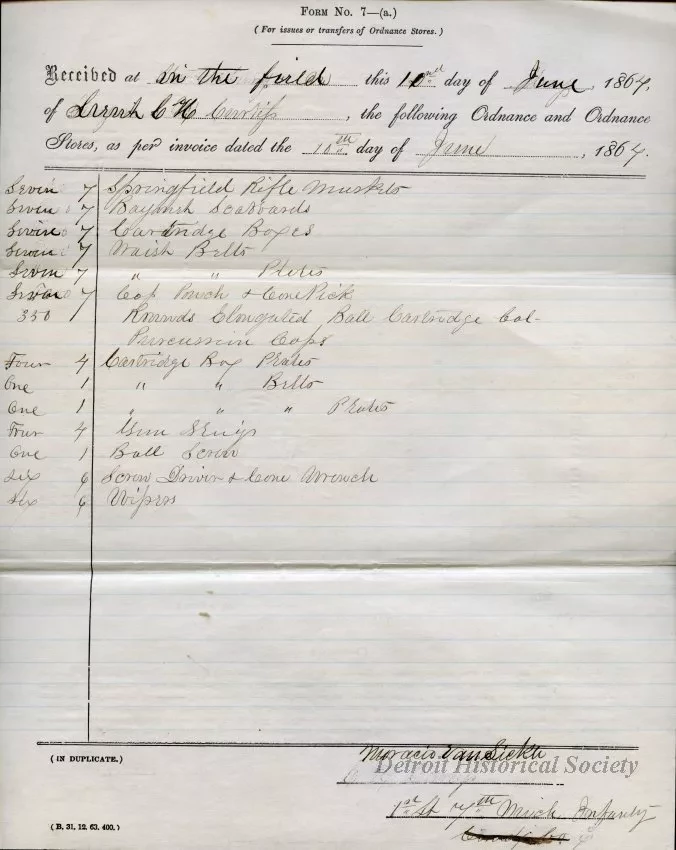 FORM NO. 7—(a.)
(For issues or transfers of Ordnance Stores.)
Received at in the field this 10th day of June, 1864,
of C H Curtiss, the following Ordnance and Ordnance
Stores, as per invoice dated the 10th day of June, 1864.
Seven 7 Springfield Rifle Muskets
Seven 7 Bayonet Scabbards
Seven 7 Cartridge Boxes
Seven 7 Waist Belts
Seven 7 " " Plates
Seven 7 Cap Pouch & Cone Pick
350 Rounds Elongated Ball Cartridge Cal-
Percussion Caps
Four 4 Cartridge Box Plates
One 1 " " Belts
One 1 " " " Plates
Four 4 Gun Slings
One 1 Ball Screw
Six 6 Screw Driver & Cone Wrench
Six 6 Wipers
(IN DUPLICATE.)
Horacio Van Sickle
Detroit Historical Society
1st Lt 7th Mich Infanty
(B. 31, 12, 63, 400.)